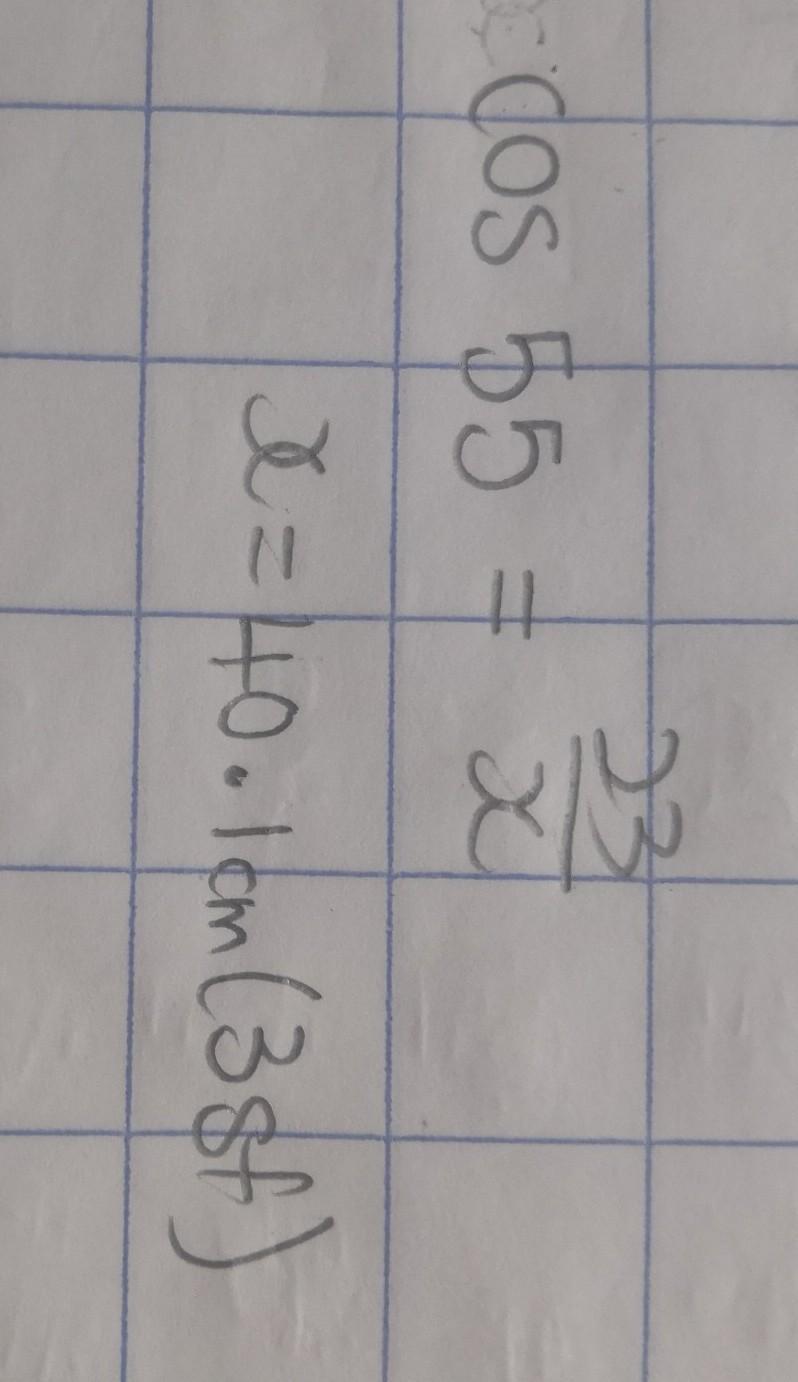 cos 55 = 23/x
x = 40.1cm (3sf)